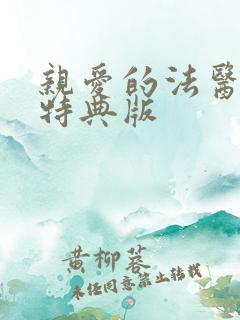 親愛的法醫
特典版
黄柳蓉
未经同意禁止转载